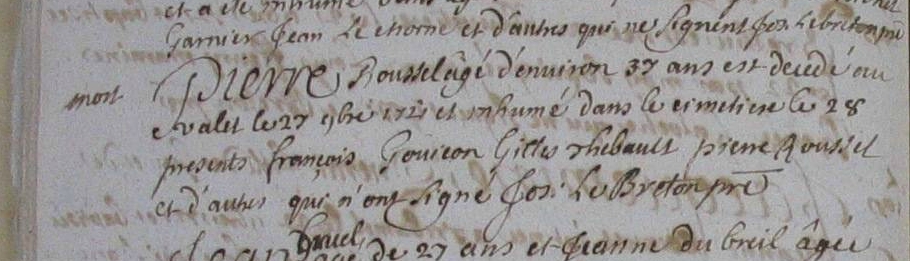 et a ete inhumé
Garnier Jean Le et d'autres qui ne signent Jos Lebreton pre
mort Pierre Rousselâgé d'environ 37 ans est decedé au
valet le 27 9bre et inhumé dans le cimetiere le 28
presents françois Gouicon Gilles thebault pierre Roussel
et d'autres qui n'ont signé Jos: Le Breton pre
Jean Cruel âgé de 27 ans et Jeanne du breil âgée